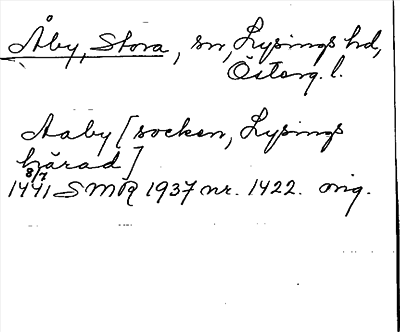 Åby, Stora, sn, Lysings hd,
Östergl. l.
Aaby [socken, Lysings
härad]
8/7
1441 SMR 1937 nr. 1422. orig.